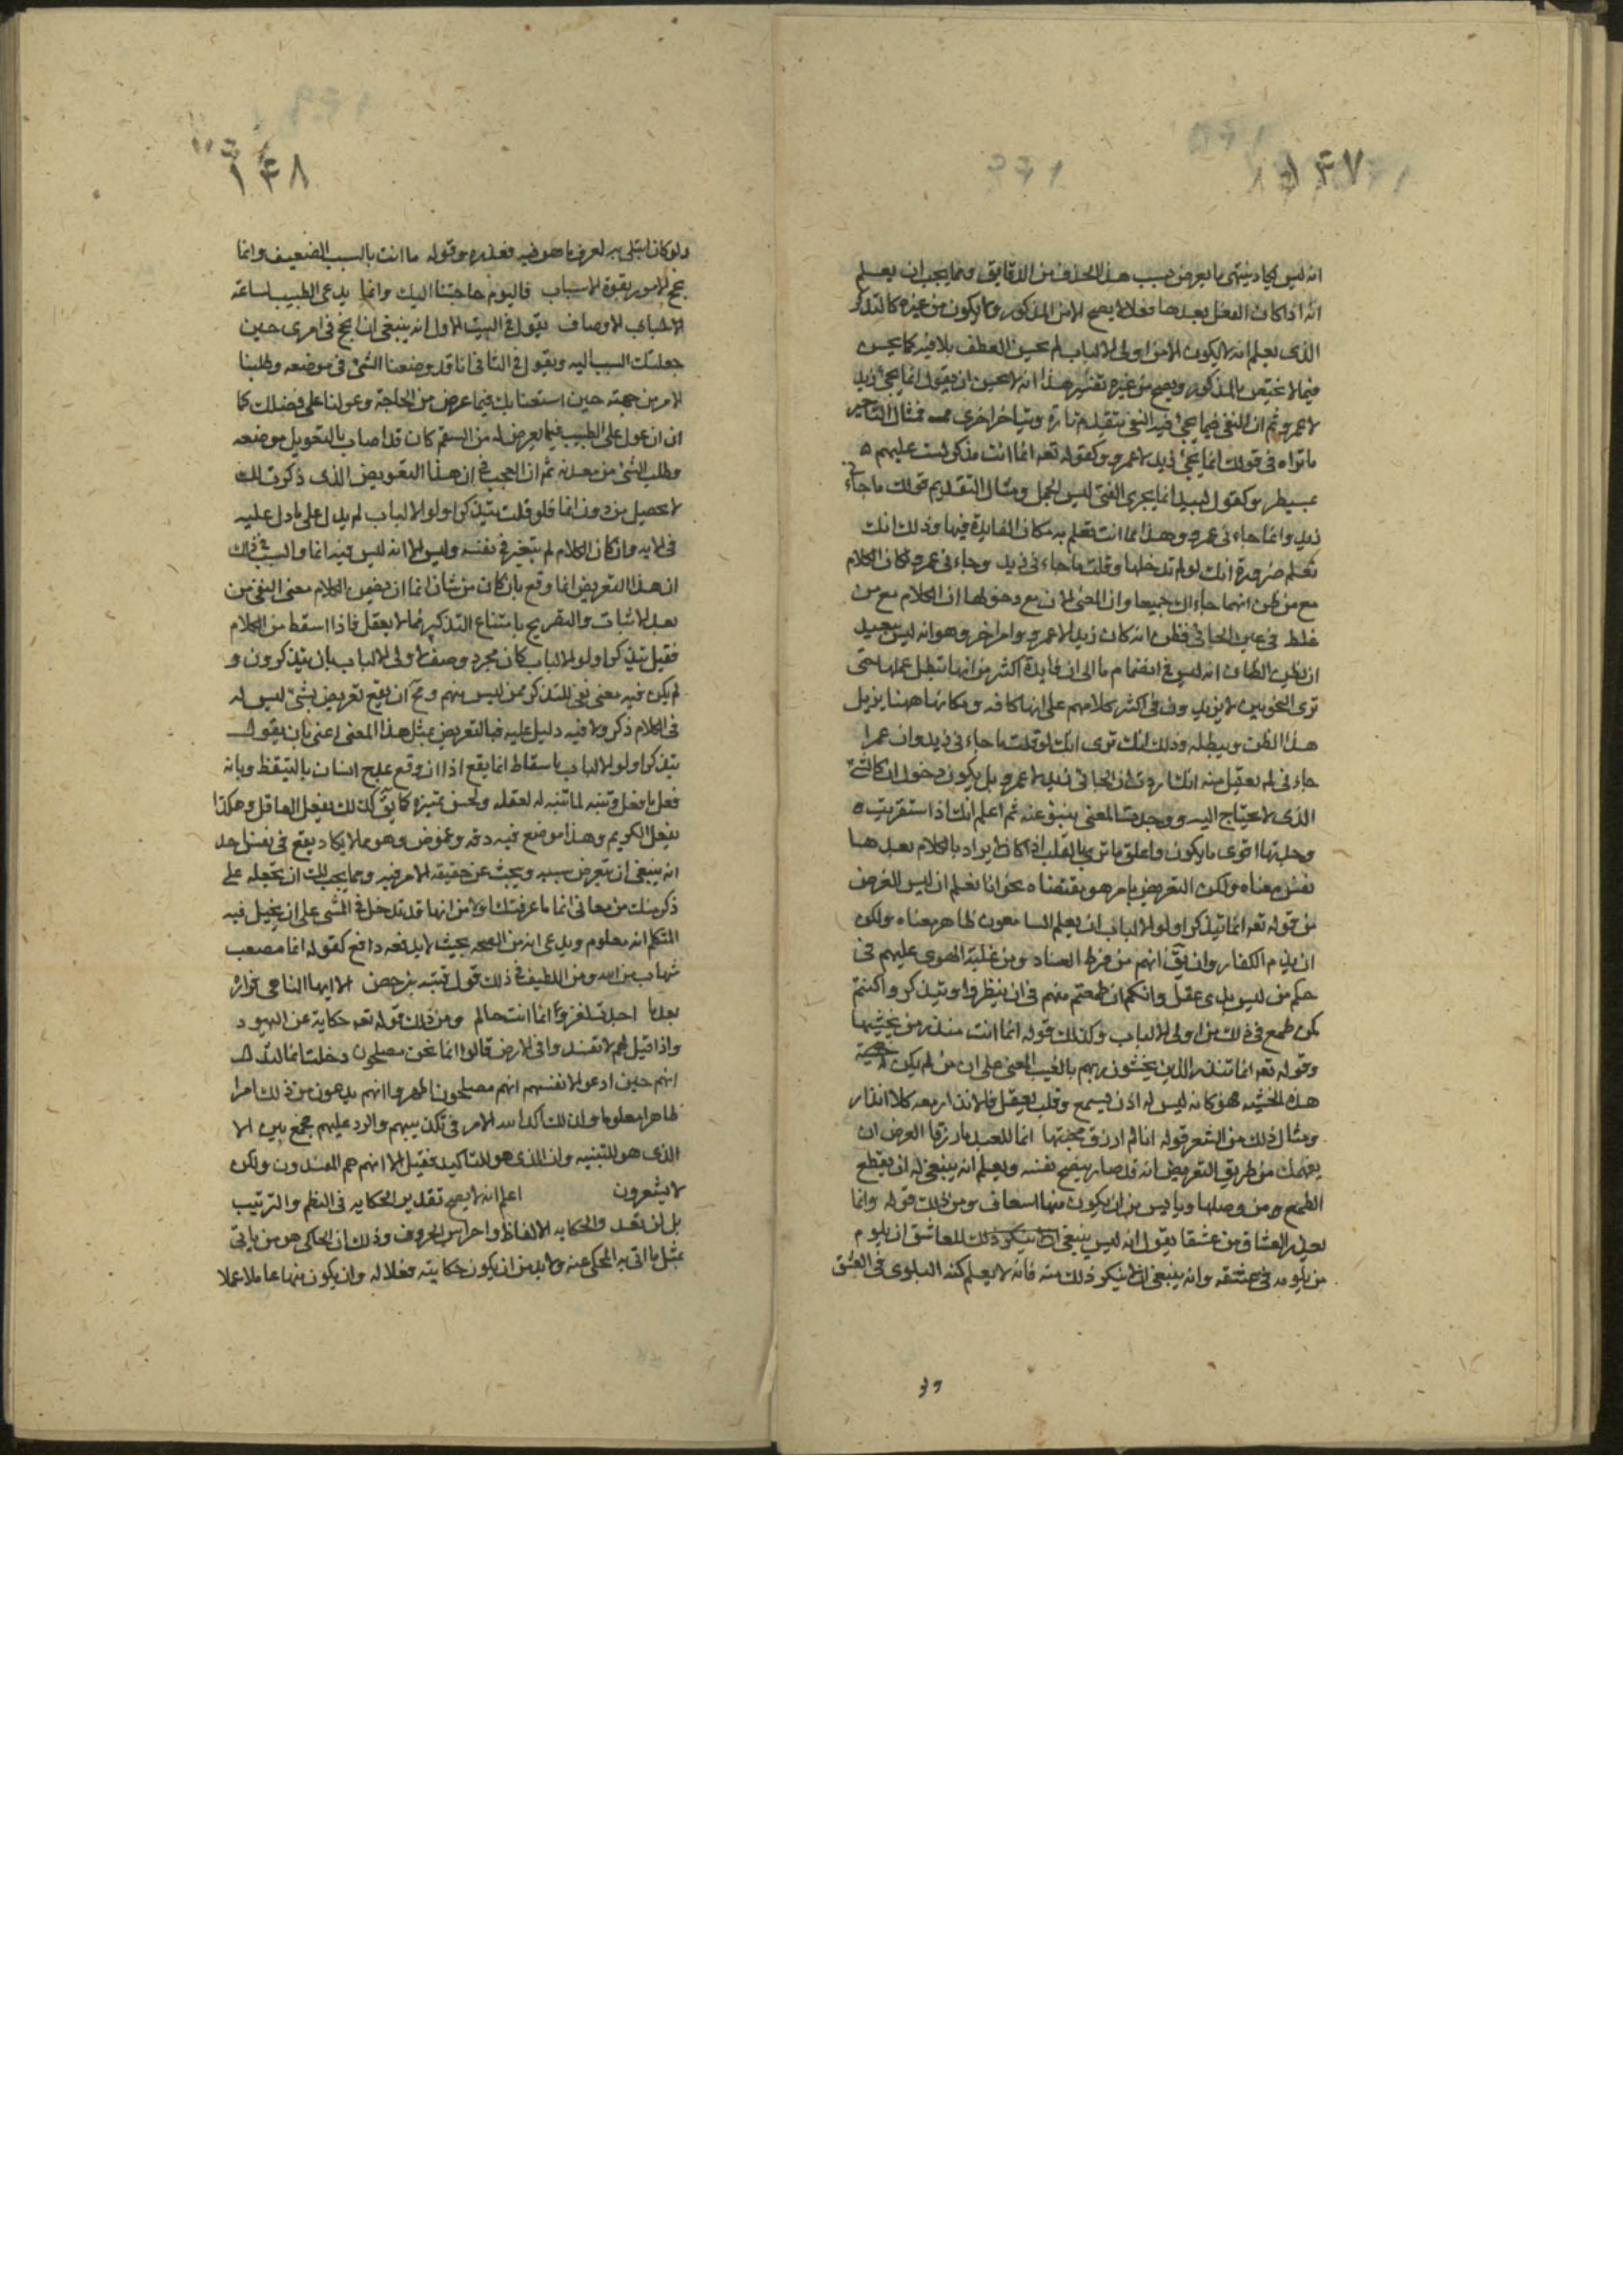 ١٤٧
انه ليس يكاد ينتهى ما يعرض بسبب هذا الحرف من الدقايق ومما يجب ان يعلم
انه اذا كان الفعل بعدها فعلا لا يصح الا من المذكور ولا يكون من غيره كالتذكر
الذى يعلم انه لا يكون الا من اولى الالباب لم يحسن العطف بلا فيه كما يحسن
فيما لا يختص بالمذكور ويصح من غيره تفسير هذا انه لا يحسن ان يقول انما يجئ زيد
لا عمرو ثم ان النفى فيما يجئ فيه النفى يتقدم تارة ويتاخر اخرى فمثال التاخير
ما تراه فى قولك انما يجئ زيد لا عمرو وكقوله تعه انما انت مذكر لست عليهم
بمسيطر وكقول لبيد انما يجزى الفتى ليس الجمل ومثال التقديم قولك ما جاءنى
زيد وانما جاءنى عمرو وهذا مما انت تعلم به مكان الفايدة فيها وذلك انك
تعلم ضرورة انك لو لم تدخلها وقلت ما جاءنى زيد وجاءنى عمرو لكان الكلام
مع من ظن انهما جاءاك جميعا وان المعنى الان مع دخولها ان الكلام مع من
غلط فى عين الجائى فظن انه كان زيدا لا عمرو وامر اخر وهو انه ليس ببعيد
ان يظن الظان انه ليس فى انضمام ما الى ان فايدة اكثر من انها تبطل عملها حتى
ترى النحويين لا يزيدون فى اكثر كلامهم على انها كافه ومكانها ههنا يزيل
هذا الظن ويبطله وذلك انك ترى انك لو قلت ما جاءنى زيد وان عمرا
جاءنى لم يعقل منه انك اردت ان الجائى زيد لا عمرو بل يكون دخول ان كالشئ
الذى لا يحتاج اليه ووجدت المعنى ينبو عنه ثم اعلم انك اذا استقريت
وجدتها اقوى ما يكون واعلق ما ترى بالقلب اذا كان لا يراد بالكلام بعدها
نفس معناه ولكن التعريض بامر هو مقتضاه نحو انا نعلم ان ليس الغرض
من قوله تعه انما يتذكر اولو الالباب ان يعلم السامعون ظاهر معناه ولكن
ان يذم الكفار وان يقَ انهم من فرط العناد ومن غلبة الهوى عليهم فى
حكم من ليس بذى عقل وانكم ان طمعتم منهم فى ان ينظروا ويتذكروا كنتم
كمن طمع فى ذلك من غير اولى الالباب وكذلك قوله انما انت منذر من يخشيها
وقوله تعه انما تنذر الذين يخشون ربهم بالغيب المعنى على ان من لم يكن له
هذه الخشيه فهو كانه ليس له اذن يسمع وقلب يعقل فالانذار معه كلا انذار
ومثال ذلك من الشعر قوله انا لم ارزق محبتها انما للعبد ما رزقا الغرض ان
يفهمك من طريق التعريض انه قد صار ينصح نفسه ويعلم انه ينبغى له ان يقطع
الطمع من وصلها ويايس من ان يكون منها اسعاف ومن ذلك قوله وانما
يعذر العشاق من عشقا يقول انه ليس ينبغى للعاشق ان يلوم
من يلومه فى عشقه وانه ينبغى ان لا ينكر ذلك منه فانه لا يعلم كنه البلوى فى العشق
١٤٨
ولو كان ابتلى به لعرف ما هو فيه فعذره وقوله ما انت بالسبب الضعيف وانما
نجح الامور بقوة الاسباب فاليوم حاجتنا اليك وانما يدعى الطبيب لساعة
الاوصاب يقول فى البيت الاول انه ينبغى ان انجح فى امرى حين
جعلتك السبب اليه ويقول فى الثانى انا قد وضعنا الشئ فى موضعه وطلبنا
الامر من جهته حين استعنا بك فيما عرض من الحاجة وعولنا على فضلك كما
ان من عول على الطبيب فيما يعرض له من السقم كان قد اصاب بالتعويل موضعه
وطلب الشئ من معدنه ثم ان العجب فى ان هذا التعريض الذى ذكرت لك
لا يحصل من دون انما فلو قلت يتذكر اولو الالباب لم يدل على ما دل عليه
فى الايه وان كان الكلام لم يتغير فى نفسه وليس الا انه ليس فيه انما والسبب فى ذلك
ان هذا التعريض انما وقع بان كان من شان انما ان يضمن الكلام معنى النفى من
بعد الاثبات والتصريح بامتناع التذكر ممن لا يعقل فاذا اسقط من الكلام
فقيل يتذكر اولو الالباب كان مجرد وصف لاولى الالباب بان يتذكرون و
لم يكن فيه معنى نفى للتذكر ممن ليس منهم ومح ان يقع تعريض بشئ ليس له
فى الكلام ذكر ولا فيه دليل عليه فالتعريض بمثل هذا المعنى اعنى بان يقول
يتذكر اولو الالباب باسقاط انما يقع اذا ان وقع بمدح انسان بالتيقظ وبانه
فعل ما فعل وتنبه لما تنبه له لعقله ولحسن تمييزه كما يقَ كذلك يفعل العاقل وهكذا
يفعل الكريم وهذا موضع فيه دقه وغموض وهو مما لا يكاد يقع فى نفس احد
انه ينبغى ان يتعرض سببه ويبحث عن حقيقة الامر فيه ومما يجب لك ان تجعله على
ذكر منك من معانى انما ما عرفتك اولا من انها قد تدخل فى الشئ على ان يخيل فيه
المتكلم انه معلوم ويدعى انه من الصحه بحيث لا يدفعه دافع كقوله انما مصعب
شهاب من الله ومن اللطيف فى ذلك قول قتبه بن حصن الا ايها الناهى فزارة
بعدما اجدت لغزو انما انت حالم ومن ذلك قوله تعه حكاية عن اليهود
واذا قيل لهم لا تفسدوا فى الارض قالوا انما نحن مصلحون دخلت انما لتدل
انهم حين ادعوا لانفسهم انهم مصلحون اظهروا انهم يدعون من ذلك امرا
ظاهرا معلوما ولذلك اكد الامر فى تكذيبهم والرد عليهم فجمع بين الا
الذى هو للتنبيه وان الذى هو للتاكيد فقيل الا انهم هم المفسدون ولكن
لا يشعرون اعلم انه لا يصح تقدير الحكايه فى النظم والترتيب
بل لن تعد والحكايه الالفاظ واجراس الحروف وذلك ان الحاكى هو من ياتى
بمثل ما اتى به المحكى عنه ولا بد من ان يكون حكايته فعلا له وان يكون منها عاملا عملا